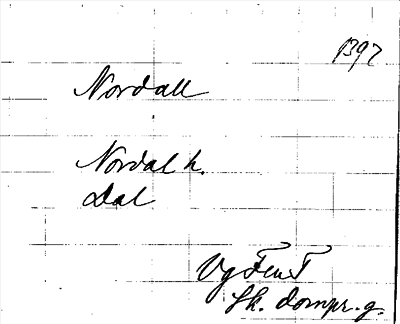 1397
Nordall
Nordal h.
Dal
Vg
Sk. dompr. g.